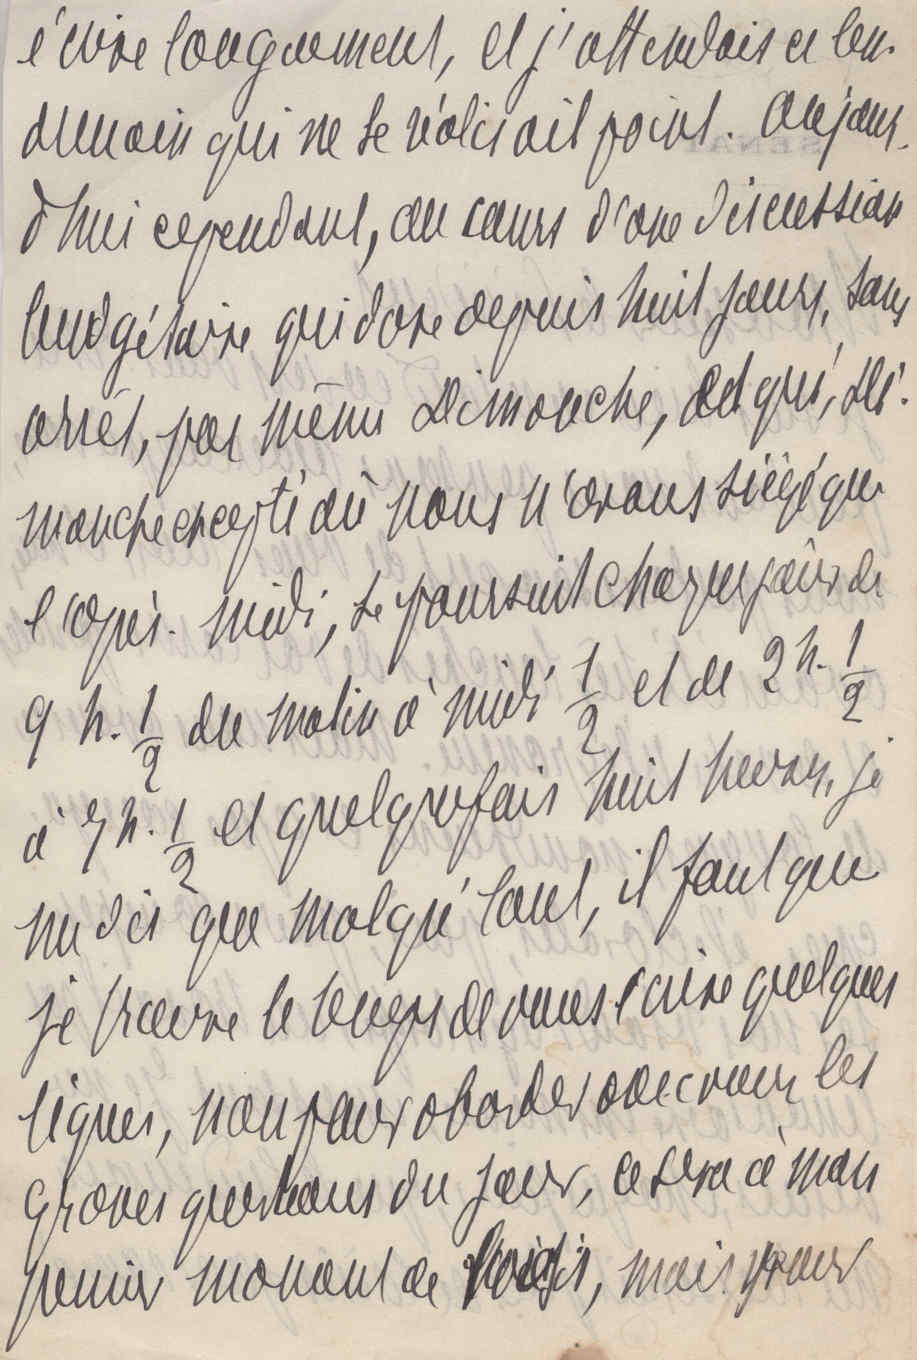 écrire longuement, et j'attendais ce len-
demain qui ne se réalisait point. Aujour-
d'hui cependant, au cours d'une discussion
budgétaire qui dure depuis huit jours, sans
arrêt, pas même Dimanche, et qui, Di-
manche excepté où nous n'avons siégé que
l'après-midi, se poursuit chaque jour de
9 h. 1/2 du matin à midi 1/2 et de 2 h. 1/2
à 7 h. 1/2 et quelquefois huit heures, je
me dis que malgré tout, il faut que
je trouve le temps de vous écrire quelques
lignes, non pour aborder avec vous les
graves questions du jour, ce sera à mon
premier moment de loisir, mais pour
SENAT